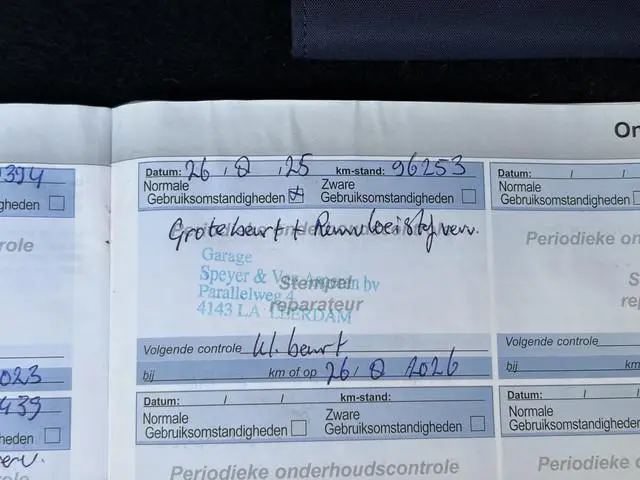 On
394
gheden
Datum: 26 / 8 / 25 km-stand: 96253
Normale Gebruiksomstandigheden
Zware Gebruiksomstandigheden
Grote beurt + Remvloeistof verv.
Periodieke onderhoudscontrole
Garage
Speyer & Van
Parallelweg 4
4143 LA LEERDAM
Stempel
reparateur
Volgende controle kl. beurt
bij km of op 26 / 8 2026
2023
439
heden
verv.
Datum: / / km-stand:
Normale Gebruiksomstandigheden
Zware Gebruiksomstandigheden
Periodieke onderhoudscontrole
Datum: / /
Normale
Gebruiksomstandigheden
Periodieke on
S
re
Volgende controle
bij
Datum: / /
Normale
Gebruiksomstandigheden
Periodieke o